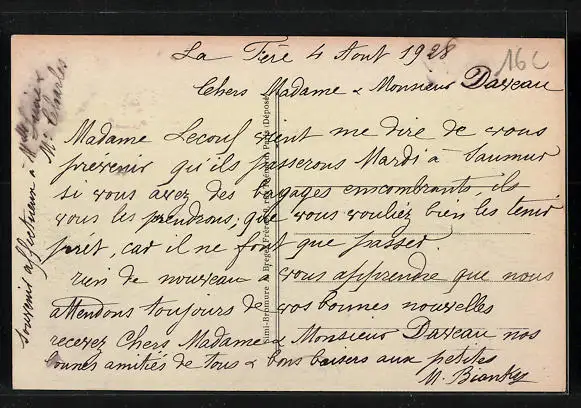 La Fère 4 Aout 1928
16C
Chers Madame & Monsieur Daveau
Madame Lecoul vient me dire de vous
prevenir qu'ils passerons Mardi à Saumur
si vous avez des bagages emcombrants, ils
vous les prendrons, que vous vouliez bien les tenir
prêt, car il ne font que passer.
rien de nouveau à vous apprendre que nous
attendons toujours de vos bonnes nouvelles
recevez Chers Madame & Monsieur Daveau nos
bonnes amitiés de tous & bons baisers aux petites
M.
Souvenir affectueux à Mlle
Mr Charles
Simi-Bromure A. Breger Frères, Paris (Déposé)